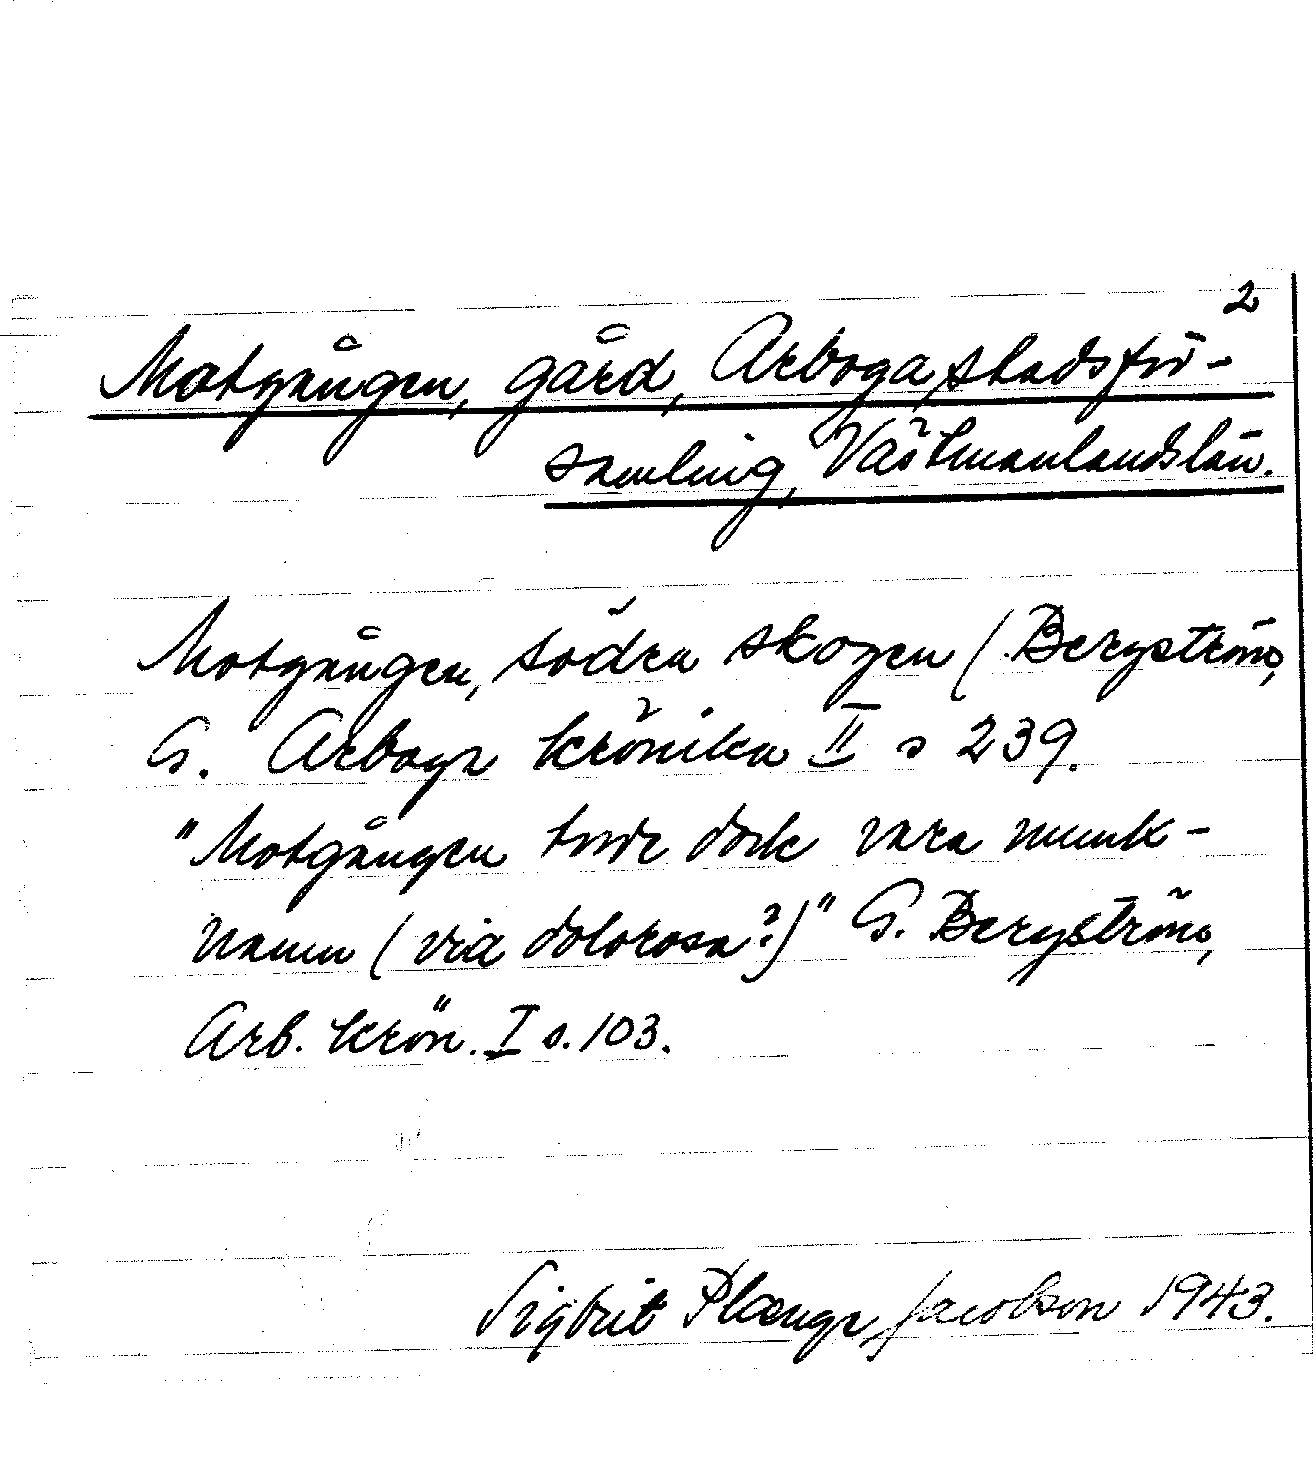 2
Motgången, gård, Arboga stadsför-
samling, Västmanlands län.
Motgången, södra skogen (Bergström,
G. Arboga krönika II s 239.
"Motgången torde dock vara munk-
namn (via dolorosa?)" G. Bergström,
Arb. krön. I s. 103.
Sigbrit Plænge Jacobson 1943.